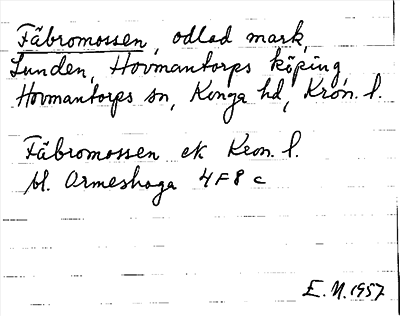 Fäbromossen, odlad mark,
Lunden, Hovmantorps köping,
Hovmantorps sn, Konga hd, Kron. l.
Fäbromossen ek Kron. l.
bl. Ormeshaga 4F8c
E.N.1957